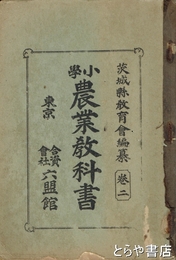 茨城縣敎育會編纂 卷二
小學農業敎科書
東京 合資會社 六盟館
とらや書店